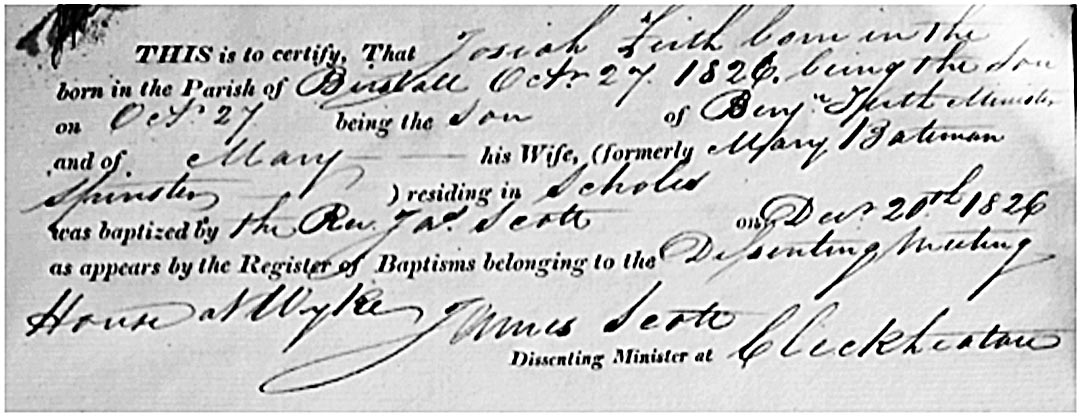 THIS is to certify, That Josiah Firth born in the
born in the Parish of Birstall Octr. 27. 1826. being the Son
on Octr. 27 being the Son of Benjn. Firth Minister
and of Mary his Wife, (formerly Mary Bateman
Spinster ) residing in Scholes
was baptized by the Rev. Jas. Scott on Decr. 20th 1826
as appears by the Register of Baptisms belonging to the Dissenting Meeting
House at Wyke James Scott
Dissenting Minister at Cleckheaton